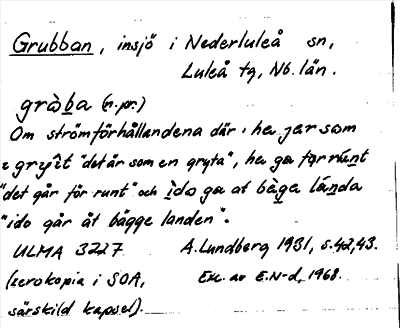 Grubban, insjö i Nederluleå sn,
Luleå tg, Nb. län.
gròb̲a (n.pr.)
Om strömförhållandena där: he jer som
e grỳ̂t "det är som en gryta", he ga for rúnt
"det går för runt" och ìdo ga at bèga lánda
"ido går åt bägge landen".
ULMA 3227 A. Lundberg 1931, s. 42,43.
(xerokopia i SOA, Exc. av E.N-d, 1968.
särskild kapsel).